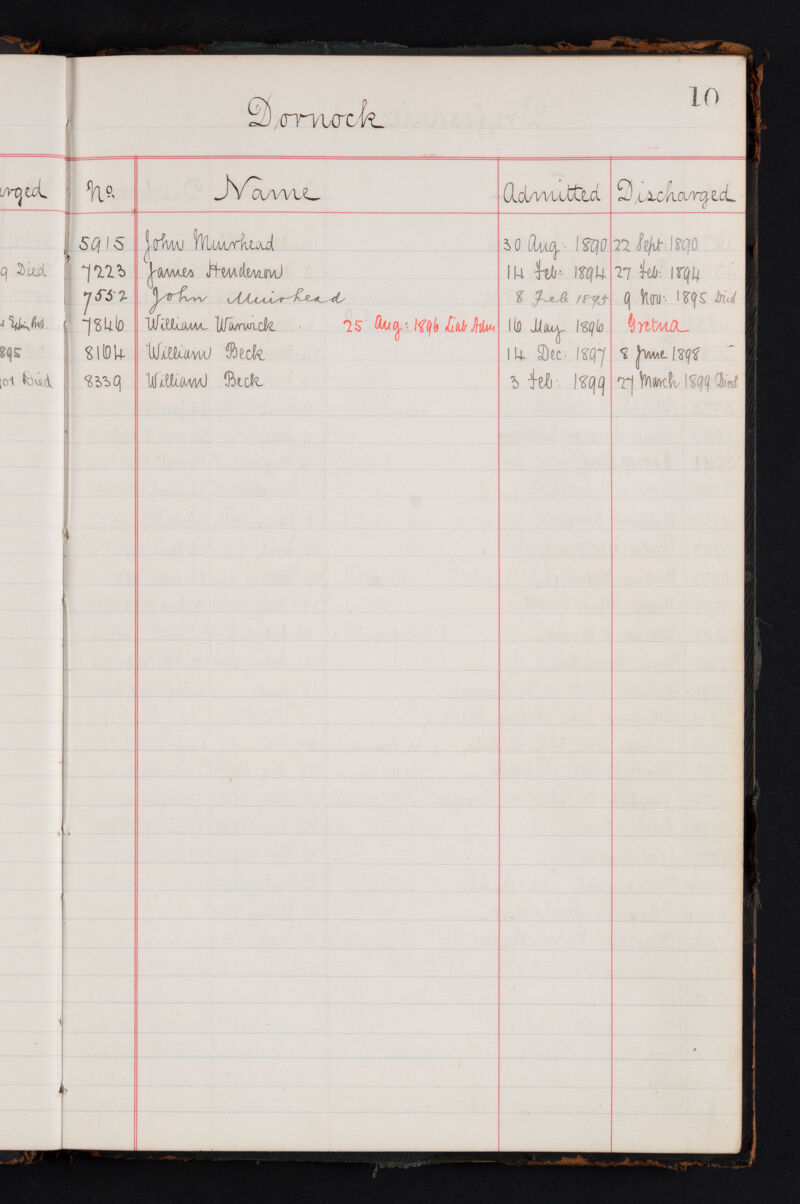 10
Dornock
arged No. Name Admitted Discharged
5915 John Muirhead 30 Aug: 1890 22 Sept: 1890
9 Died 7223 James Henderson 14 Feb: 1894 27 Feb: 1894
7552 John Muirhead 8 Feb 1895 9 Nov: 1895 Died
7846 William Warwick 25 Aug: 1896 Liab Adm 16 May 1896 Gretna
895 8104 William Beck 14 Dec: 1897 8 June 1898
01 Died 8339 William Beck 3 Feb: 1899 27 March 1899 Died